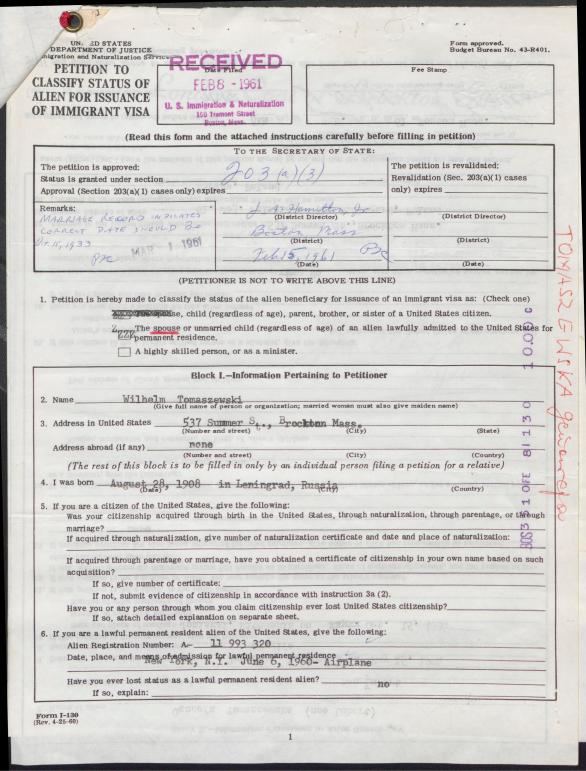 UNITED STATES
DEPARTMENT OF JUSTICE
Immigration and Naturalization Service
PETITION TO
CLASSIFY STATUS OF
ALIEN FOR ISSUANCE
OF IMMIGRANT VISA
Date Filed
RECEIVED
FEB 8 - 1961
U. S. Immigration & Naturalization
150 Tremont Street
Boston, Mass.
Form approved.
Budget Bureau No. 43-R401.
Fee Stamp
(Read this form and the attached instructions carefully before filling in petition)
TO THE SECRETARY OF STATE:
The petition is approved:
Status is granted under section 203(a)(3)
Approval (Section 203(a)(1) cases only) expires
The petition is revalidated:
Revalidation (Sec. 203(a)(1) cases
only) expires
Remarks:
MARRIAGE RECORD INDICATES
CORRECT DATE SHOULD BE
15, 1933
MAR 1 1961
J. A. Hamilton, Jr.
(District Director)
Boston Mass
(District)
Feb. 15, 1961
(Date)
(District Director)
(District)
(Date)
(PETITIONER IS NOT TO WRITE ABOVE THIS LINE)
1. Petition is hereby made to classify the status of the alien beneficiary for issuance of an immigrant visa as: (Check one)
spouse, child (regardless of age), parent, brother, or sister of a United States citizen.
The spouse or unmarried child (regardless of age) of an alien lawfully admitted to the United States for
permanent residence.
A highly skilled person, or as a minister.
Block I.—Information Pertaining to Petitioner
2. Name Wilhelm Tomaszewski
(Give full name of person or organization; married woman must also give maiden name)
3. Address in United States 537 Summer St., Brockton Mass.
(Number and street) (City) (State)
Address abroad (if any) none
(Number and street) (City) (Country)
(The rest of this block is to be filled in only by an individual person filing a petition for a relative)
4. I was born August 28, 1908 in Leningrad, Russia
(Date) (City) (Country)
5. If you are a citizen of the United States, give the following:
Was your citizenship acquired through birth in the United States, through naturalization, through parentage, or through
marriage?
If acquired through naturalization, give number of naturalization certificate and date and place of naturalization:
If acquired through parentage or marriage, have you obtained a certificate of citizenship in your own name based on such
acquisition?
If so, give number of certificate:
If not, submit evidence of citizenship in accordance with instruction 3a (2).
Have you or any person through whom you claim citizenship ever lost United States citizenship?
If so, attach detailed explanation on separate sheet.
6. If you are a lawful permanent resident alien of the United States, give the following:
Alien Registration Number: A- 11 993 320
Date, place, and means of admission for lawful permanent residence
New York, N.Y. June 6, 1960- Airplane
Have you ever lost status as a lawful permanent resident alien? no
If so, explain:
Form I-130
(Rev. 4-25-60)
1
TOMASZEWSKA